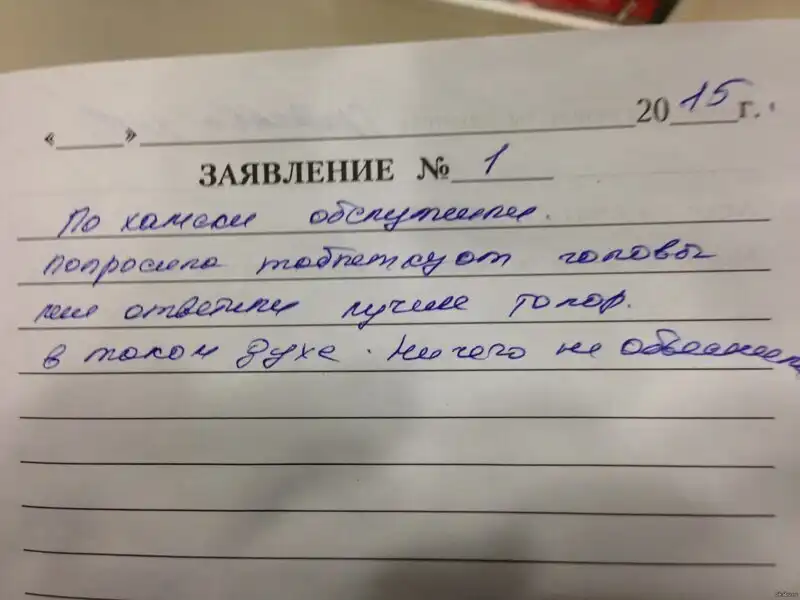 «____»____ 2015 г.
ЗАЯВЛЕНИЕ № 1
По хамски обслужили.
попросила таблетку от головы
мне ответили лучше топор.
в таком духе. Ничего не объяснили